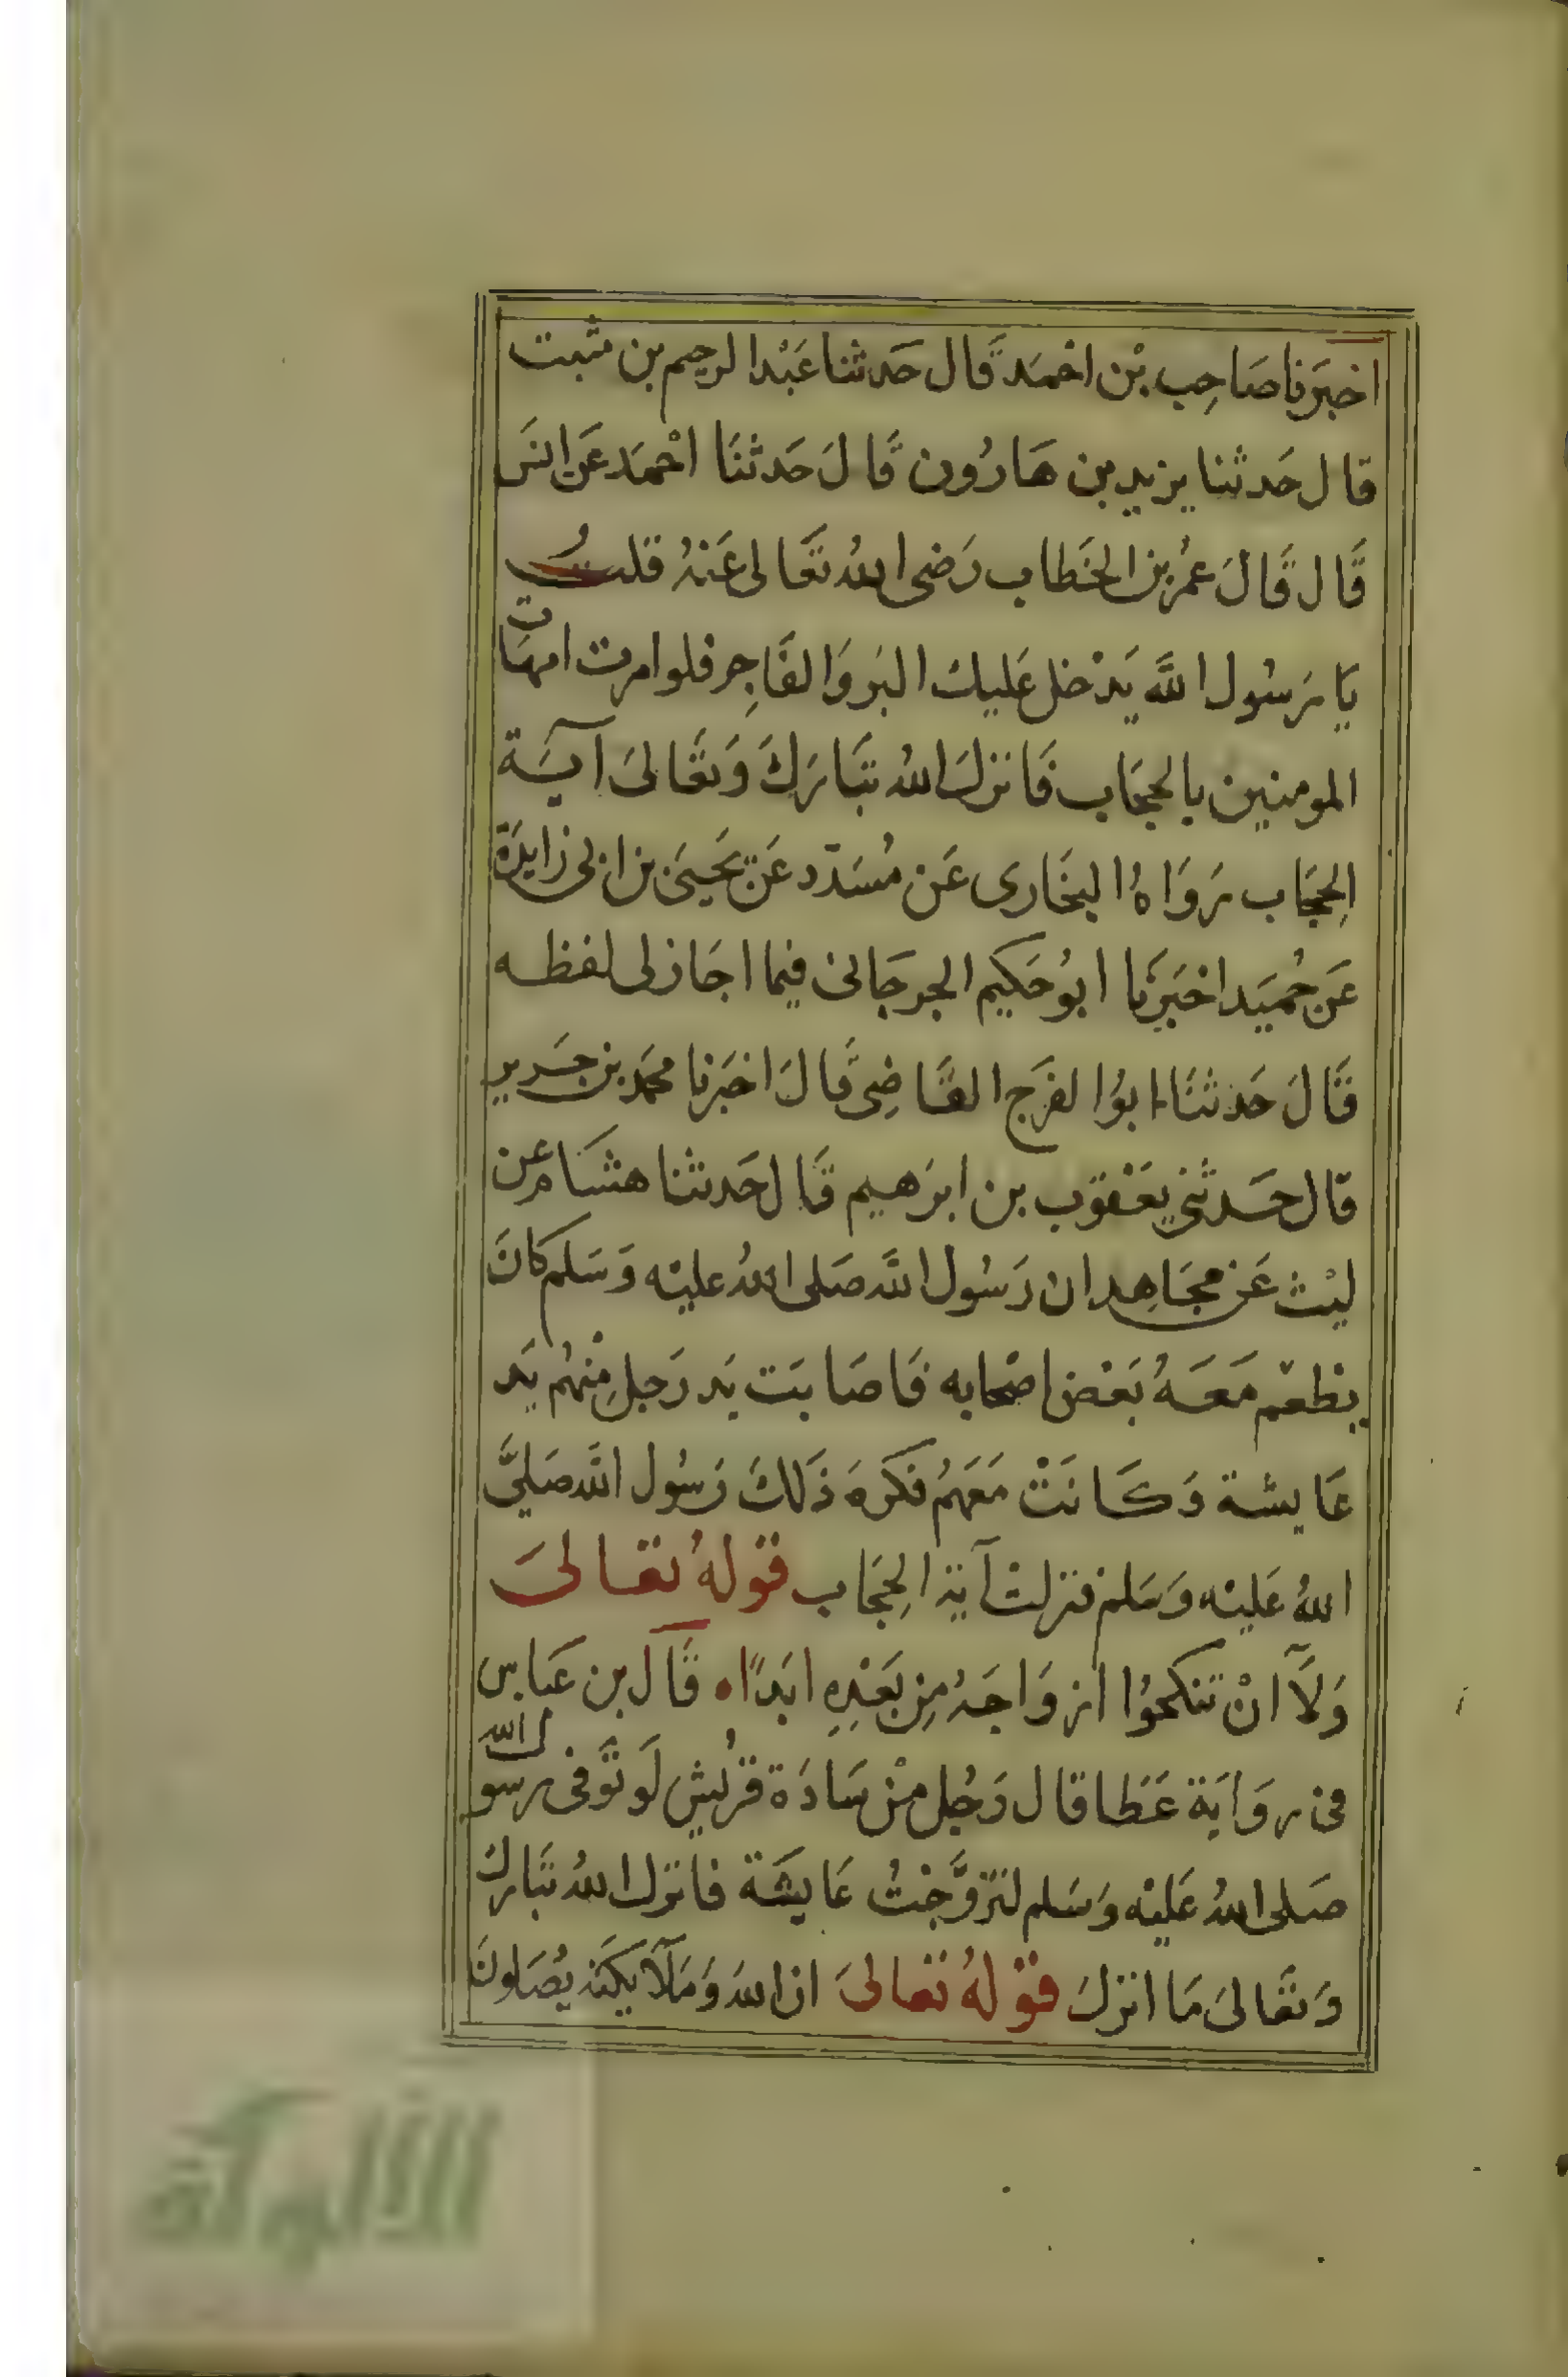 اخبَرَنا صَاحِب بْن احْمَد قَال حَدثنا عَبْد الرحِيم بن مثبت
قال حَدثنا يزيد بن هَارُون قَالَ حَدثنَا احْمَد عَن انَس
قَال قَالَ عمُر بن الخَطاب رَضى اللهُ تعَالى عَنْهُ قلتُ
يَا رَسُول اللَّه يَدْخل عَليك البَر وَالفَاجِر فلو امرت امهَات
المومنين بالحجَاب فَانزلَ اللهُ تبَارَكَ وَتعَالىَ آيَة
الحِجَاب رَوَاهُ البخَارى عَن مُسَدّد عَن يَحيىَ بن ابى زايدَة
عَن حُمَيَد اخبَرَنَا ابوُ حَكيم الجرجَانى فيما اجَاز لى لفظه
قَالَ حَدثنَا ابوُا الفَرَج القَاضِى قَالَ اخبَرنا محمَد بن جَرير
قال حَدثني يَعْقوَب بن ابرَهيم قَال حَدثنا هشَام عن
ليْث عَن مجَاهِد ان رَسُول اللَّه صَلى اللهُ عليْه وَسَلم كانَ
يطعَم مَعَهُ بَعْض اصْحابه فَاصَابَت يَد رَجل مِنْهُم يَد
عَايشة وَكَانَتْ مَعَهُم فكرهَ ذَلكَ رَسُول اللَّه صَليَّ
اللهُ عَليْه وَسَلم فنزلتْ آية الحِجَاب قوْلهُ تعَالىَ
وَلاَ انْ تنكحوُا ازوَاجَهُ مِن بَعْدِهِ ابَدًا قَال بن عَباس
فى روَايَة عَطَا قال رَجُل مْن سَادَة قرُيش لَو توَفى رسول الله
صَلى اللهُ عَليْه وَسَلم لتزوَّجْتُ عَايشَة فانزل اللهُ تبَارك
وَتعَالىَ مَا انزلَ قوْلهُ تعالىَ ان اللهَ وَمَلآيكتَه يُصَلونَ
الألوكة